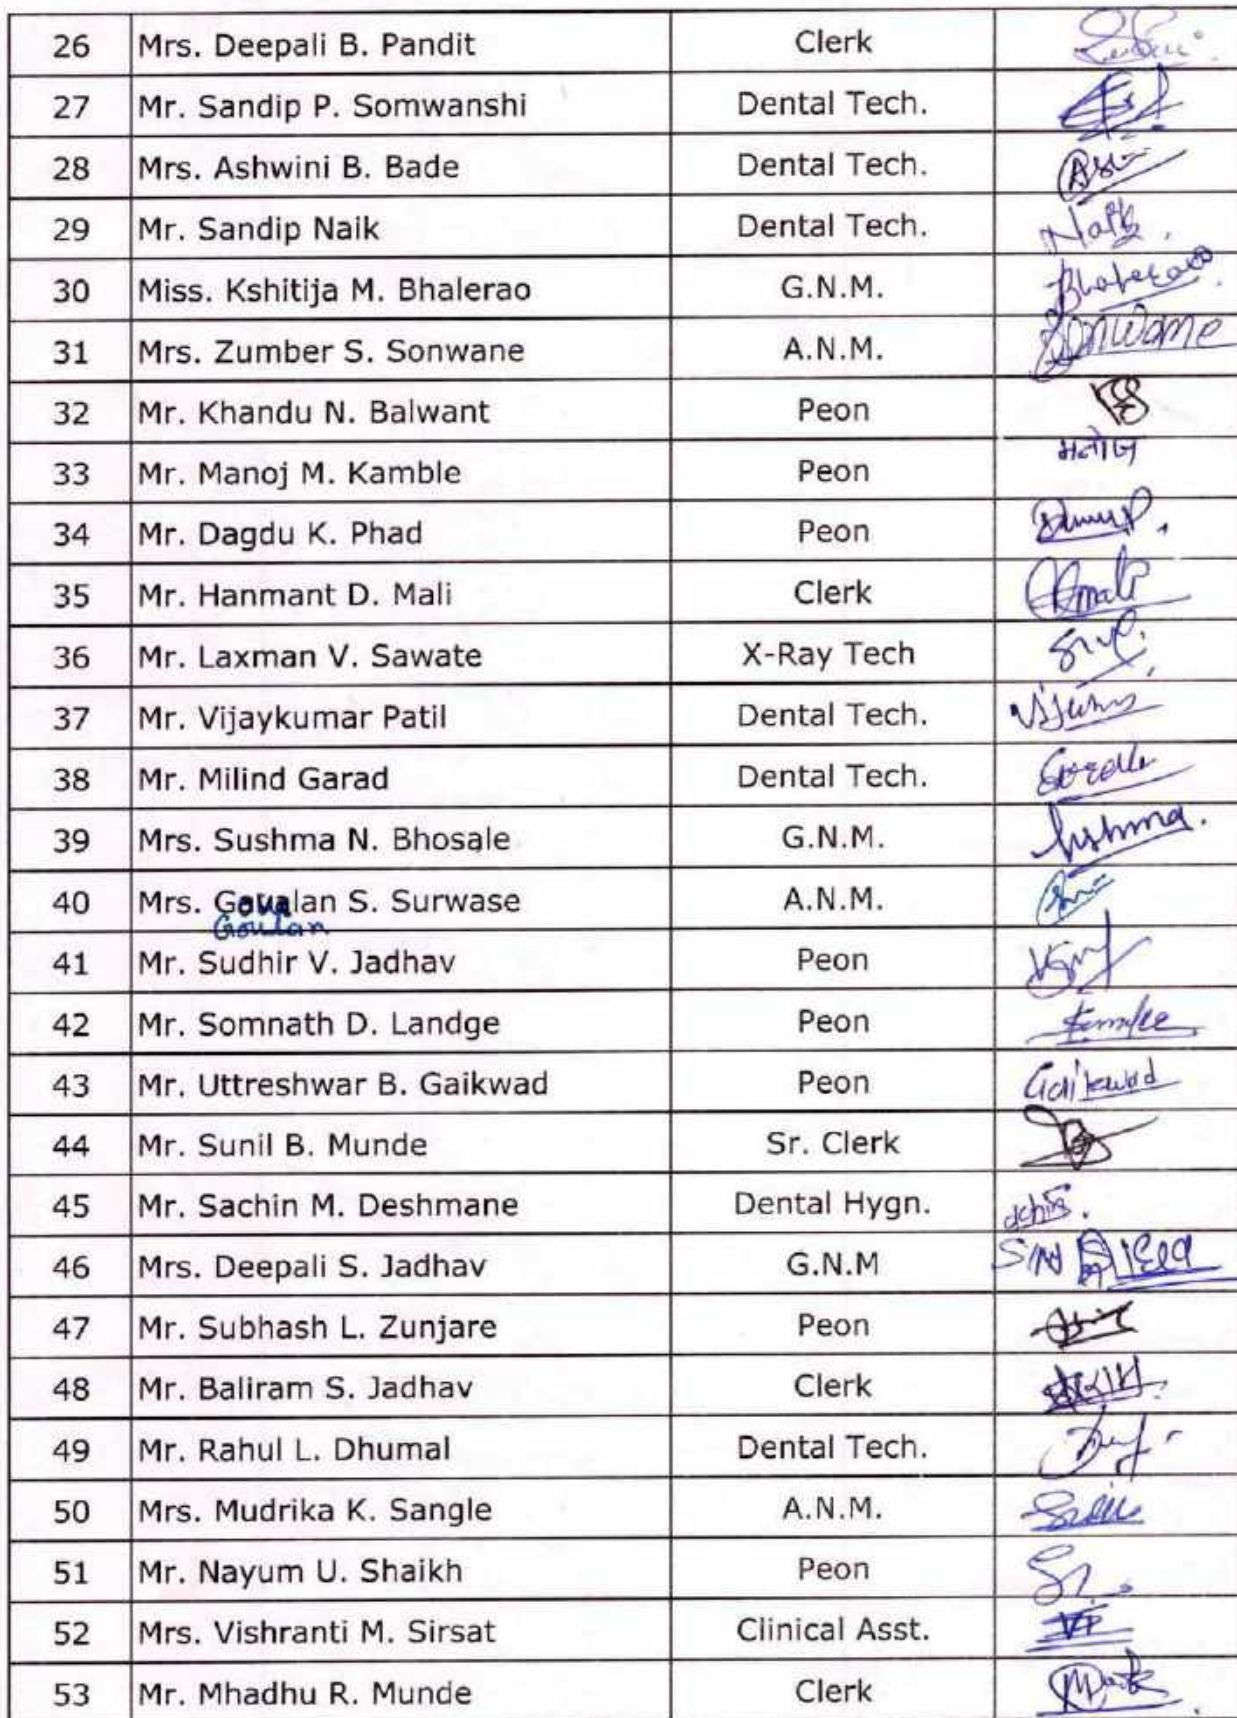 26 Mrs. Deepali B. Pandit Clerk
27 Mr. Sandip P. Somwanshi Dental Tech.
28 Mrs. Ashwini B. Bade Dental Tech.
29 Mr. Sandip Naik Dental Tech. Naik
30 Miss. Kshitija M. Bhalerao G.N.M. Bhalerao
31 Mrs. Zumber S. Sonwane A.N.M. Sonwane
32 Mr. Khandu N. Balwant Peon
33 Mr. Manoj M. Kamble Peon मनोज
34 Mr. Dagdu K. Phad Peon
35 Mr. Hanmant D. Mali Clerk
36 Mr. Laxman V. Sawate X-Ray Tech
37 Mr. Vijaykumar Patil Dental Tech.
38 Mr. Milind Garad Dental Tech.
39 Mrs. Sushma N. Bhosale G.N.M. Sushma.
40 Mrs. Goualan S. Surwase A.N.M.
Goulan
41 Mr. Sudhir V. Jadhav Peon
42 Mr. Somnath D. Landge Peon
43 Mr. Uttreshwar B. Gaikwad Peon Gaikwad
44 Mr. Sunil B. Munde Sr. Clerk
45 Mr. Sachin M. Deshmane Dental Hygn.
46 Mrs. Deepali S. Jadhav G.N.M
47 Mr. Subhash L. Zunjare Peon
48 Mr. Baliram S. Jadhav Clerk
49 Mr. Rahul L. Dhumal Dental Tech.
50 Mrs. Mudrika K. Sangle A.N.M.
51 Mr. Nayum U. Shaikh Peon
52 Mrs. Vishranti M. Sirsat Clinical Asst.
53 Mr. Mhadhu R. Munde Clerk